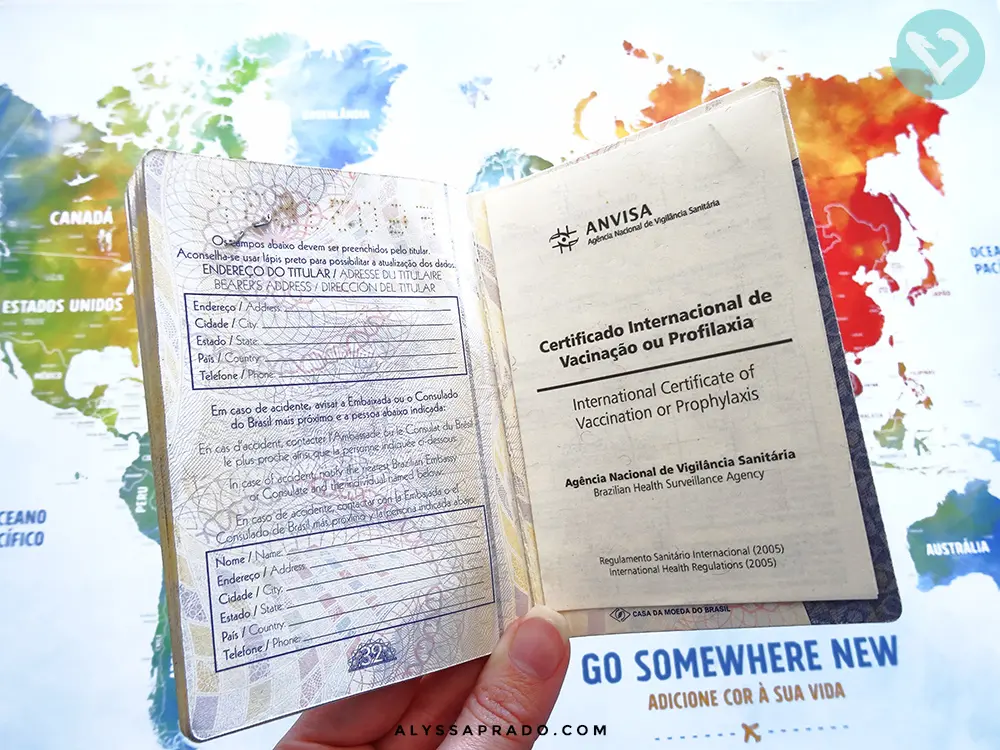 Os campos abaixo devem ser preenchidos pelo titular.
Aconselha-se usar lápis preto para possibilitar a atualização dos dados.
ENDEREÇO DO TITULAR / ADRESSE DU TITULAIRE
BEARER'S ADDRESS / DIRECCIÓN DEL TITULAR
Endereço / Address:
Cidade / City:
Estado / State:
País / Country:
Telefone / Phone:
Em caso de acidente, avisar a Embaixada ou o Consulado
do Brasil mais próximo e a pessoa abaixo indicada:
En cas d'accident, contacter l'Ambassade ou le Consulat du Brésil
le plus proche ainsi que la personne indiquée ci-dessous:
In case of accident, notify the nearest Brazilian Embassy
or Consulate and the individual named below:
En caso de accidente, contactar con la Embajada o el
Consulado de Brasil más próximo y la persona indicada abajo:
Nome / Name:
Endereço / Address:
Cidade / City:
Estado / State:
País / Country:
Telefone / Phone:
32
ANVISA
Agência Nacional de Vigilância Sanitária
Certificado Internacional de
Vacinação ou Profilaxia
International Certificate of
Vaccination or Prophylaxis
Agência Nacional de Vigilância Sanitária
Brazilian Health Surveillance Agency
Regulamento Sanitário Internacional (2005)
International Health Regulations (2005)
CASA DA MOEDA DO BRASIL
CANADÁ
ESTADOS UNIDOS
MÉXICO
PERU
AUSTRÁLIA
GO SOMEWHERE NEW
ADICIONE COR À SUA VIDA
ALYSSAPRADO.COM